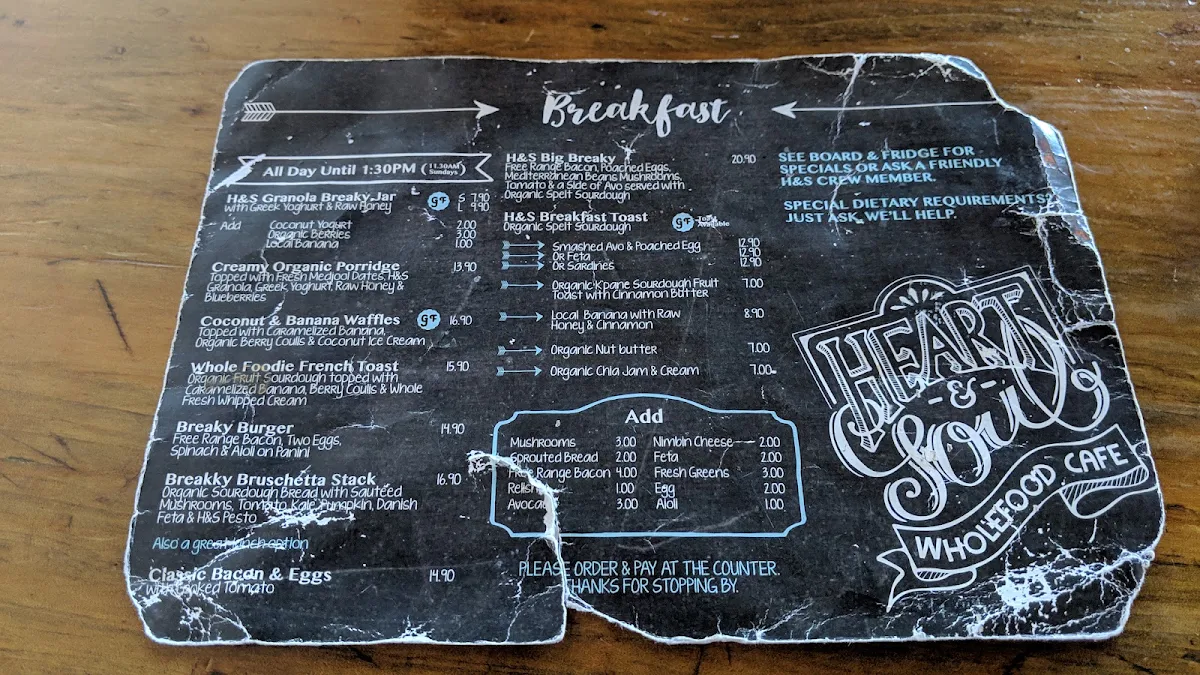 Breakfast
All Day Until 1:30PM (11.30AM Sundays)
H&S Granola Breaky Jar gf S 7.90
with Greek Yoghurt & Raw Honey L 9.90
Add Coconut Yogurt 2.00
Organic Berries 3.00
Local Banana 1.00
Creamy Organic Porridge 13.90
Topped with Fresh Medjool Dates, H&S
Granola, Greek Yoghurt, Raw Honey &
Blueberries
Coconut & Banana Waffles gf 16.90
Topped with Caramelized Banana,
Organic Berry Coulis & Coconut Ice Cream
Whole Foodie French Toast 15.90
Organic Fruit Sourdough topped with
Caramelized Banana, Berry Coulis & Whole
Fresh Whipped Cream
Breaky Burger 14.90
Free Range Bacon, Two Eggs,
Spinach & Aioli on Panini
Breakky Bruschetta Stack 16.90
Organic Sourdough Bread with Sauteed
Mushrooms, Tomato, Kale, Pumpkin, Danish
Feta & H&S Pesto
Also a great lunch option
Classic Bacon & Eggs 14.90
with Baked Tomato
H&S Big Breaky 20.90
Free Range Bacon, Poached Eggs,
Mediterranean Beans Mushrooms,
Tomato & a Side of Avo served with
Organic Spelt Sourdough
H&S Breakfast Toast gf Toast Available
Organic Spelt Sourdough
Smashed Avo & Poached Egg 12.90
Or Feta 12.90
Or Sardines 12.90
Organic Kpane Sourdough Fruit 7.00
Toast with Cinnamon Butter
Local Banana with Raw 8.90
Honey & Cinnamon
Organic Nut butter 7.00
Organic Chia Jam & Cream 7.00
Add
Mushrooms 3.00 Nimbin Cheese 2.00
Sprouted Bread 2.00 Feta 2.00
Free Range Bacon 4.00 Fresh Greens 3.00
Relish 1.00 Egg 2.00
Avocado 3.00 Aioli 1.00
PLEASE ORDER & PAY AT THE COUNTER.
THANKS FOR STOPPING BY.
SEE BOARD & FRIDGE FOR
SPECIALS OR ASK A FRIENDLY
H&S CREW MEMBER.
SPECIAL DIETARY REQUIREMENTS?
JUST ASK, WE'LL HELP.
HEART
&
Soul
WHOLEFOOD CAFE